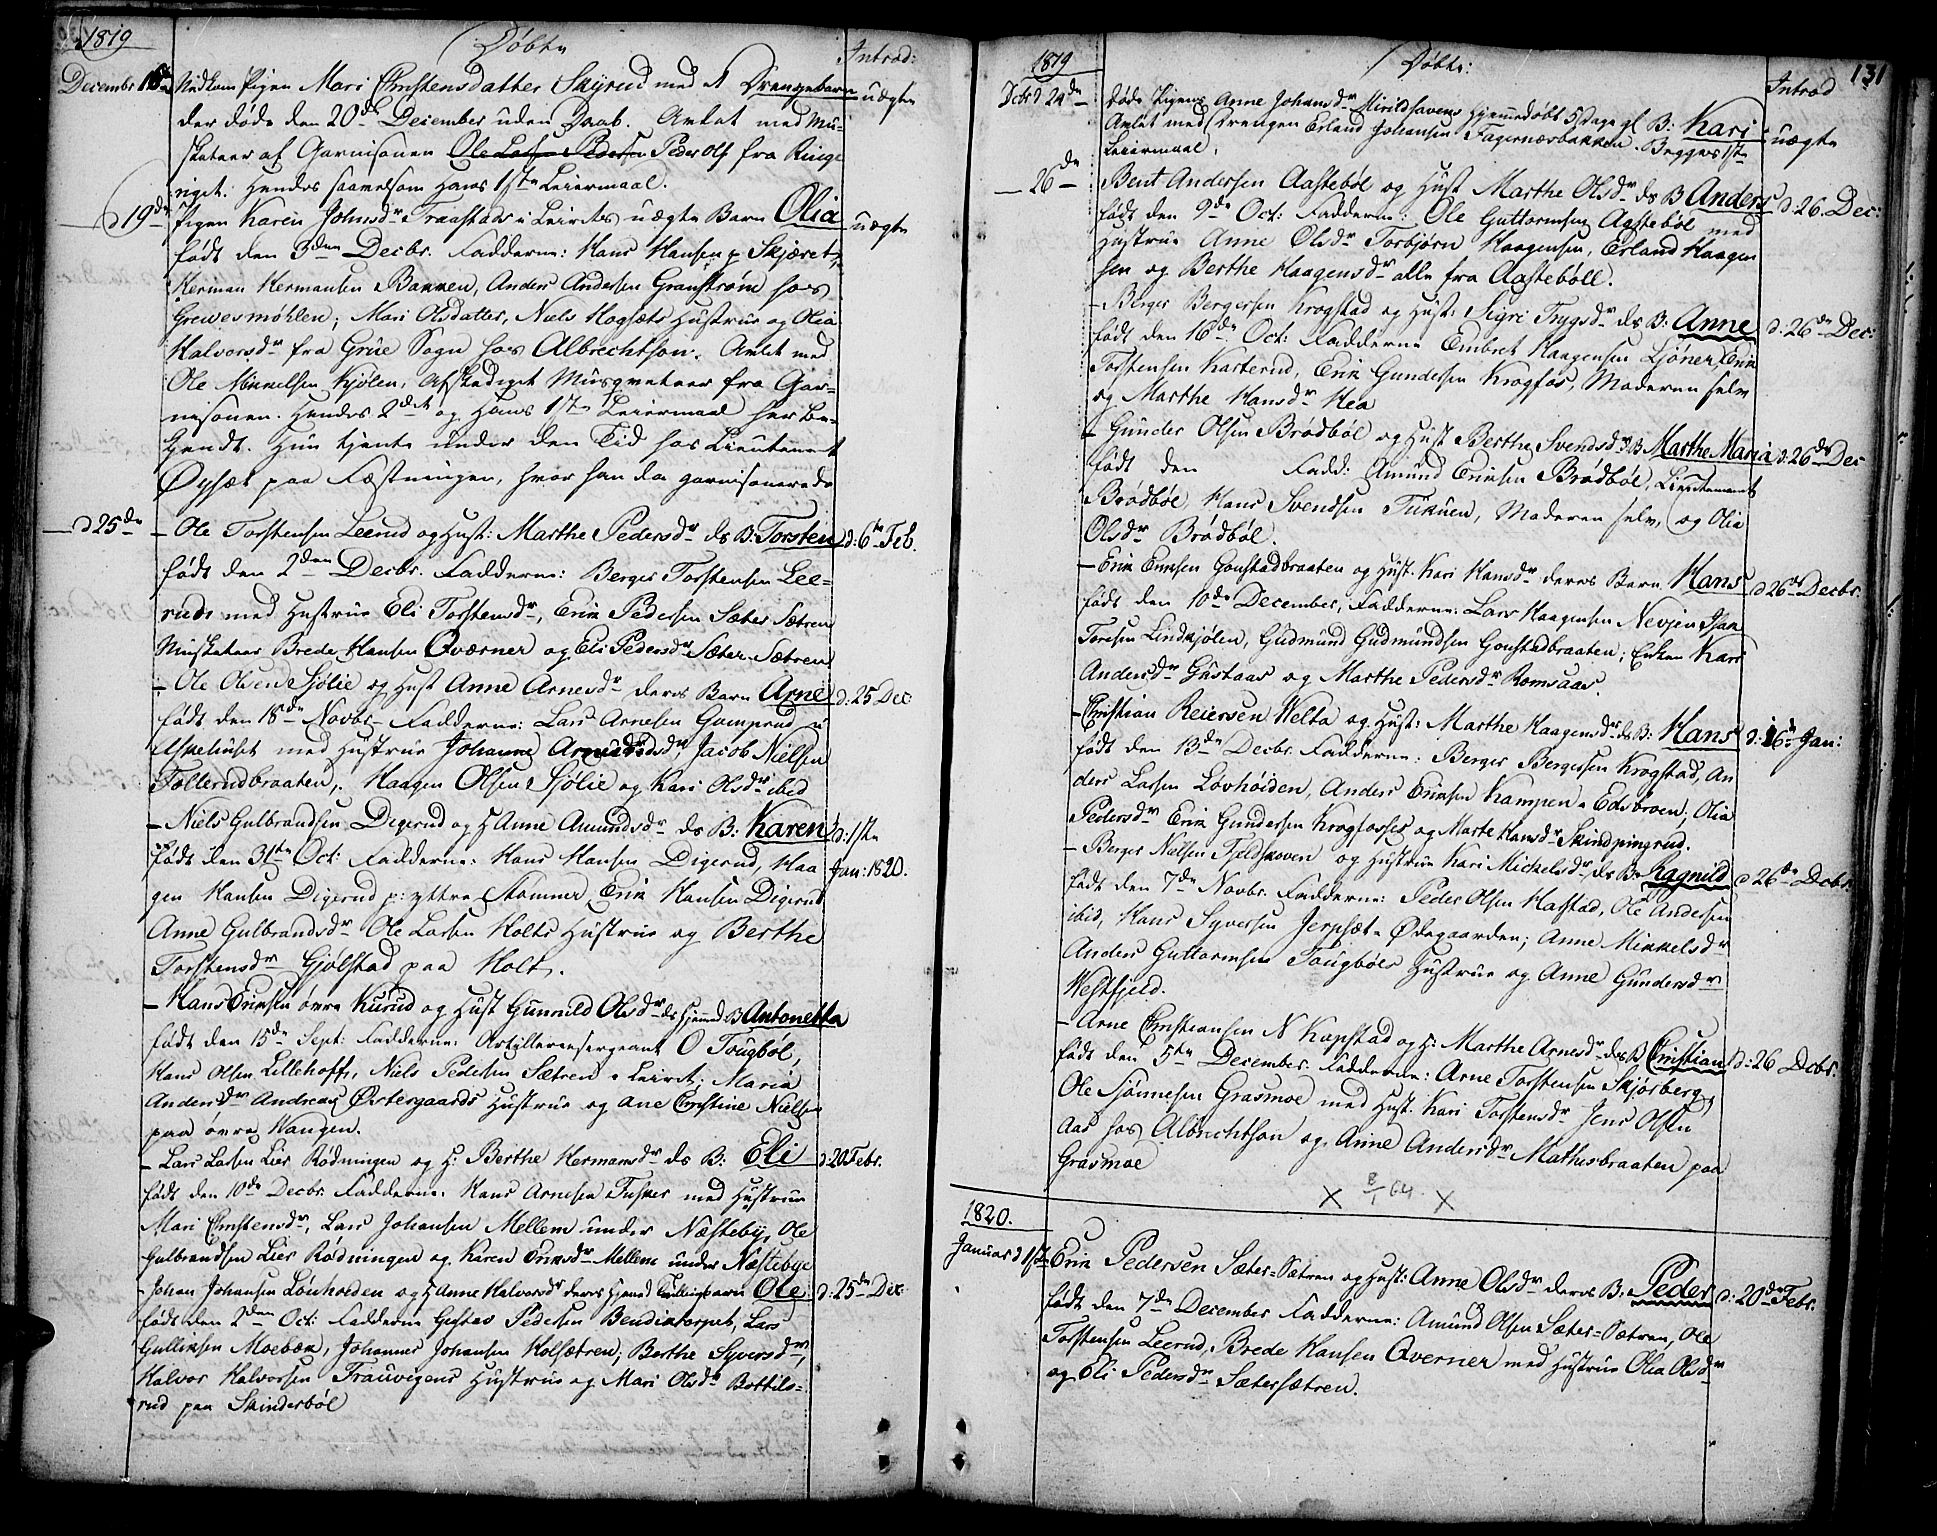 1819
Døbte
Introd:
Decembr 16de Nedkom Pigen Mari Christensdatter Skyrud med et Drengebarn uægte
der døde den 20de December uden Daab. Avlet med Mu-
sketeer af Garnisonen Ole Larsen Pedersen Peder Ols fra Ringe
riget. Hendes saavelsom Hans 1ste Leiermaal.
d 19de Pigen Karen Johnsdr Traastads i Leirets uægte Barn Olia uægte
født den 3den Decbr. Fadderne: Hans Hansen p Skjæret,
Herman Hermansen Bakken, Anders Andersen Granstrøm hos
Grewesmøhlen; Mari Olsdatter, Niels Hogsæts Hustrue og Olia
Halvorsdr fra Grue Sogn hos Albrechtson. Avlet med
Ole Mikkelsen Kjølen, Afskediget Musqveteer fra Gar-
nisonen. Hendes 2det og Hans 1ste Leiermaal her be-
kjendt. Hun tjente under den Tid hos Lieutenant
Øysæt paa Fæstningen, hvor han da garnisonerede
d 25de – Ole Torstensen Leerud og Hust: Marthe Pedersdr ds B: Torsten d: 6te Feb.
født den 2den Decbr. Fadderne: Berger Torstensen Lee-
ruds med Hustrue Eli Torstensdr, Erik Pedersen Sæter Sætren
Musketeer Brede Hansen Qværner og Eli Pedersdr Sæter-Sætren
– Ole Olsen Sjølie og Hust Anne Arnesdr deres Barn Arne d: 25 Dec
født den 18de Novbr. Fadderne: Lars Arnesen Gamprud i
Askehuset med Hustrue Johanne Amundsdr, Jacob Nielsen
Tollerudbraaten, Haagen Olsen Sjølie og Kari Olsdr ibid
– Niels Gulbrandsen Digerud og H Anne Amundsdr ds B: Karen d: 1ste
født den 31te Oct: Fadderne: Hans Hansen Digerud, Haa Jan: 1820.
gen Hansen Digerud p: yttre Stommer, Erik Hansen Digerud
Anne Gulbrandsdr Ole Larsen Holts Hustrue og Berthe
Torstensdr Gjølstad paa Holt.
– Hans Eriksen övre Kurud og Hust Gunnild Olsdr ds Hjemd B Antonetta
født den 15de Sept: Fadderne: Artilleriesergeant O Tougbøl,
Hans Olsen Lillehoff, Niels Pedersen Sætren i Leiret; Maria
Andersdr Andreas Østergaards Hustrue og Ane Christine Nielsen
paa övre Vangen.
– Lars Larsen Lier Rødningen og H: Berthe Hermansdr ds B: Eli d: 20 Febr.
født den 10de Decbr. Fadderne: Hans Arnesen Tusker med Hustrue
Mari Christensdr, Lars Johansen Mellem under Næsteby, Ole
Gulbrandsen Lier Rødningen og Karen Eriksdr Mellem under Næstebye
– Johan Johansen Lövhøiden og H Anne Halvorsdr deres Hjemd Tvillingbarn Ole d: 25de Dec
født den 2den Oct: Fadderne Gustav Pedersen Bendiktorpet, Lars
Gulliksen Moebæk, Johannes Johansen Holsætren; Berthe Syversdr,
Halvor Halvorsen Frauvigens Hustrue og Mari Olsdr Bottils-
rud paa Skinderbøl
131
1819
Døbte:
Introd
Dcbr d 24de Døde Pigens Anne Johansdr Mirildhavens Hjemmedøbt 5 Dage gl B: Kari uægte
Avlet med Drengen Erland Johansen Fagernæsbakken. Begges 1ste
Leiermaal.
26de – Bent Andersen Aastebøl og Hust Marthe Olsdr ds B Anders d: 26. Dec:
født den 9de Oct: Fadderne: Ole Guttormsen Aastebøl med
Hustrue Anne Olsdr Torbjørn Haagensen, Erland Haagen
sen og Berthe Haagensdr alle fra Aastebøll.
– Berger Bergersen Krogstad og Hust: Sigri Trygsdr ds B: Anne d: 26de Dec:
født den 16de Oct: Fadderne Embret Haagensen Ljöner, Erik
Torstensen Karterud, Erik Gundersen Krogfos, Moderen selv
og Marthe Hansdr Hea
– Gunder Olsen Brødbøl og Hust Berthe Svendsdr ds B Marthe Maria d: 26de Dec
født den Fadd: Amund Eriksen Brødbøl, Lieutenant
Brødbøl, Hans Svendsen Tukuen, Moderen selv, og Olia
Olsdr Brødbøl.
– Erik Eriksen Gonstadbraaten og Hust. Kari Hansdr deres Barn Hans d 26de Decbr.
født den 10de December, Fadderne: Lars Haagensen Nevjen Isak
Toresen Lindkjølen, Gudmund Gudmundsen Gonstadbraaten; Enken Kari
Andersdr Gustaas og Marthe Pedersdr Romsaas.
– Christian Reiersen Velta og Hust: Marthe Haagensdr ds B: Hans d: 16de Jan:
født den 13de Decbr. Fadderne: Berger Bergersen Krogstad, An
ders Larsen Lövhöiden, Anders Eriksen Kampen v Edsbroen; Olia
Pedersdr Erik Gundersen Krogfosses og Marte Hansdr Skindpungrud.
– Berger Nielsen Fjeldskoven og Hustrue Kari Mickelsdr ds B: Ragnild d 26de Dcbr
født den 7de Novbr. Fadderne: Peder Olsen Harstad, Ole Andersen
ibid, Hans Syversen Jerpset v Ødegaarden; Anne Mikkelsdr
Anders Guttormsen Tougbøls Hustrue og Anne Gundersdr
Westfjeld.
– Arne Christiansen N Kapstad og H: Marthe Arnesdr ds B Christian d: 26 Dcbr.
født den 5te December. Fadderne: Arne Torstensen Skjørberg,
Ole Sjønnesen Grasmoe med Hust. Kari Torstensdr Jens Olsen
Aas hos Albrechtson og Anne Andersdr Mathisbraaten paa
Grasmoe
X 8/1 64. X
1820.
Januar d 1ste Erik Pedersen Sæter-Sætren og Hust: Anne Olsdr deres B: Peder d: 20de Febr.
født den 7de December Fadderne: Amund Olsen Sæter-Sætren, Ole
Torstensen Leerud, Brede Hansen Qverner med Hustrue Olia Olsdr
og Eli Pedersdr Sætersætren.